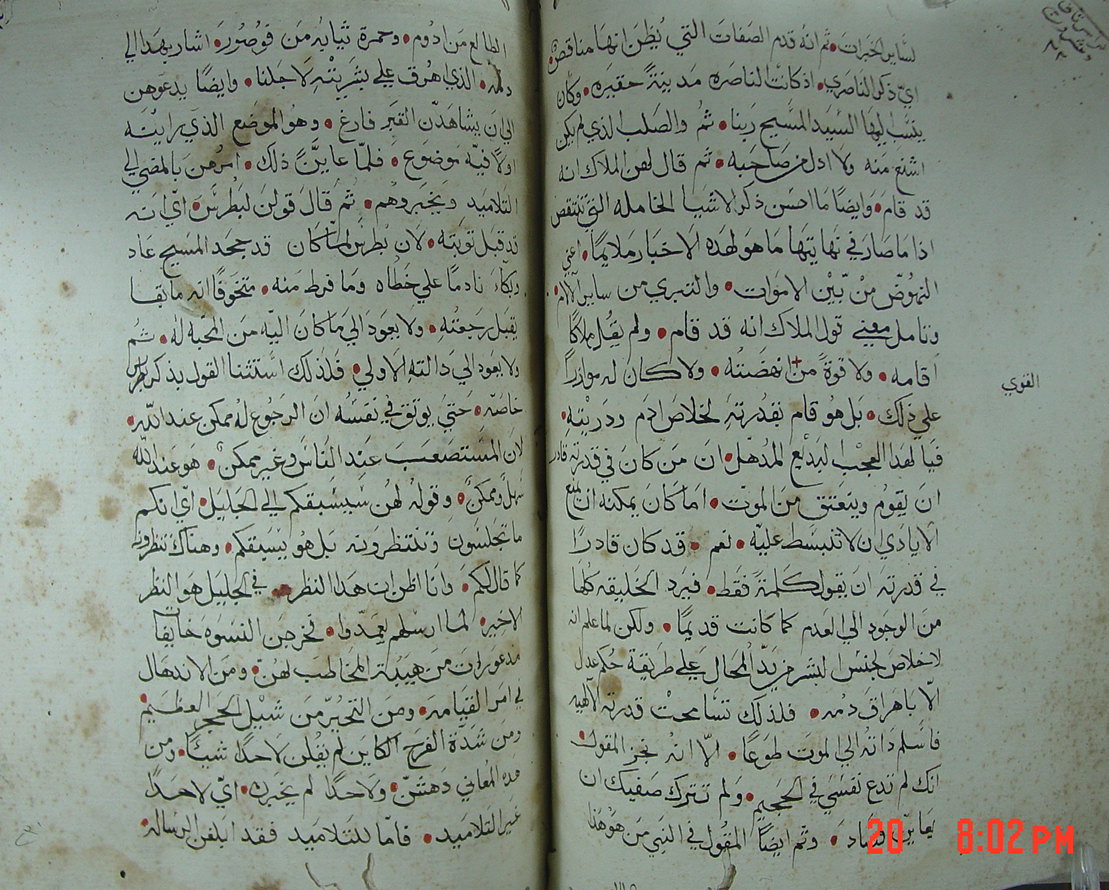 لساير الخيرات • ثم انه قدم الصفات التي يُظن انها مناقصه
اي ذكر الناصري • اذ كانت الناصره مدينةً حقيره • وكان
ينسب اليها السيد المسيح ربنا • ثم والصلب الذي لم يكن
اشنع منه ولا ادل من صاحبه • ثم قال لهن الملاك انه
قد قام • وايضًا ما احسن ذكر الاشيا الخامله التي تنتقص
اذا ما صار في نهايتها ما هو لهذه الاخبار ملايمًا • اعني
النهوض من بين الاموات • والتبري من ساير الالام •
وتامل معني قول الملاك انه قد قام • ولم يقل ملاكًا
اقامه • ولا قوةً من انهضته • ولا كان له موازرًا
القوي
علي ذلك • بل هو قام بقدرته لخلاص ادم وذريته •
فيا لهذا العجب البديع المذهل • ان من كان في قدرته قادر
ان يقوم وينعتق من الموت • اما كان يمكنه ان يمنع
الايادي ان لا تنبسط عليه • نعم • قد كان قادرًا
في قدرته ان يقول كلمةً فقط • فيرد الخليقه كلها
من الوجود الي العدم كما كانت قديمًا • ولكن لما علم انه
لا خلاص لجنس البشر من يد المحال علي طريقة حكم عدل
الا باهراق دمه • فلذلك تسامحت قدرته الالهيه
فاسلم ذاته الي الموت طوعًا • الا انه نجز المقول •
انك لم تدع نفسي في الجحيم • ولم تترك صفيك ان
يعاين فسادًا • وثم ايضًا المقول في النبي من هو هذا
الطالع من ادوم • وحمرة ثيابه من قوصور • اشار بهذا الي
دمه • الذي اهرق علي بشريته لاجلنا • وايضًا يدعوهن
الي ان يشاهدن القبر فارغ • وهو الموضع الذي راينه
اولًا فيه موضوع • فلما عاين ذلك • امرهن بالمضي الي
التلاميد ويخبروهم • ثم قال قولن لبطرس • اي انه
قد قبل توبته • لان بطرس لما كان قد جحد المسيح عاد
وبكاء نادمًا علي خطاه وما فرط منه • متخوفًا انه ما بقا
يقبل رجعته • ولا يعود الي ما كان اليه من المحبه له • ثم
ولا يعود الي دالته الاولي • فلذلك استثنا القول بذكر بطرس
خاصه • حتي يوثق في نفسه ان الرجوع له ممكن عند الله •
لان المستصعب عند الناس وغير ممكن • هو عند الله
سهل وممكن • وقوله لهن سيسبقكم الي الجليل • اي انكم
ما تجلسون وتنتظرونه بل هو يسبقكم • وهناك تنظرونه
كما قال لكم • وانا اظن ان هذا النظر • في الجليل هو النظر
الاخير • لما ارسلهم يعمدوا • فخرجن النسوه خايفات
مدعورات من هيبة المخاطب لهن • ومن الاندهال
في امر القيامه • ومن التحير من شيل الحجر العظيم •
ومن شدة الفرح الكاين لم يقلن لاحد شيًا • ومن
هذه المعاني دهشن • ولاحدًا لم يخبره • اي لاحدًا
غير التلاميد • فاما للتلاميد فقد ابلغن الرساله •
20 8:02 PM